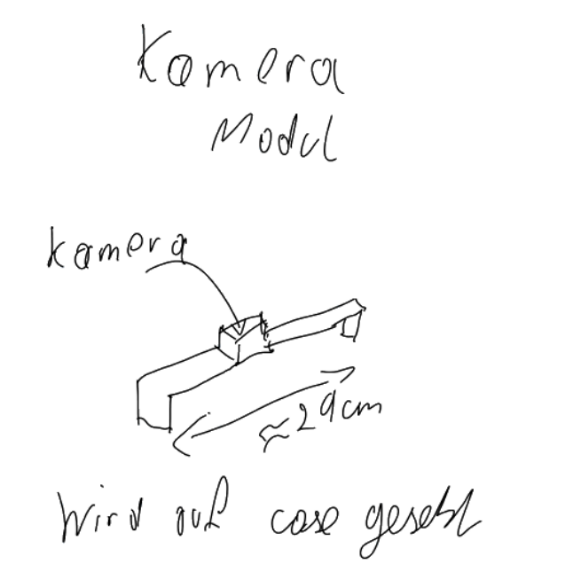 Kamera
Modul
kamera
≈29cm
Wird auf case gesetzt